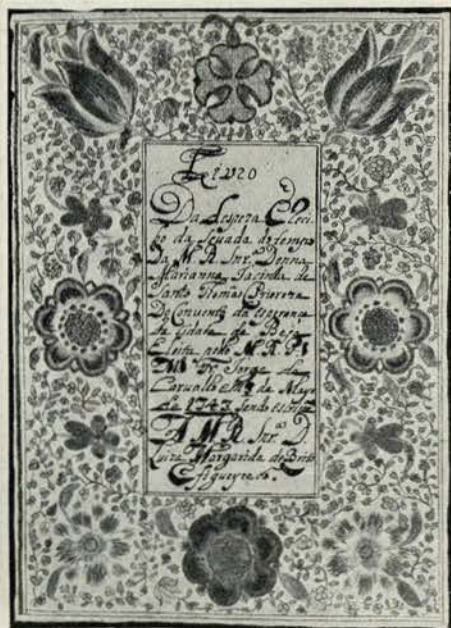 Livro
Da Despeza E Reci
bo da Sevada do tempo
Da M. R. Snr.ª Donna
Marianna Jacinta de
Santo Thomas Prioreza
Do Convento da esperança
da Cidade de Beja
Eleita pello M. R. P.
Fr. Jorge de
Carvalho de Mayo
de 1743 sendo escrivã
A M. R. Snr.ª D.
Luiza Margarida de Brito
E figueyredo.